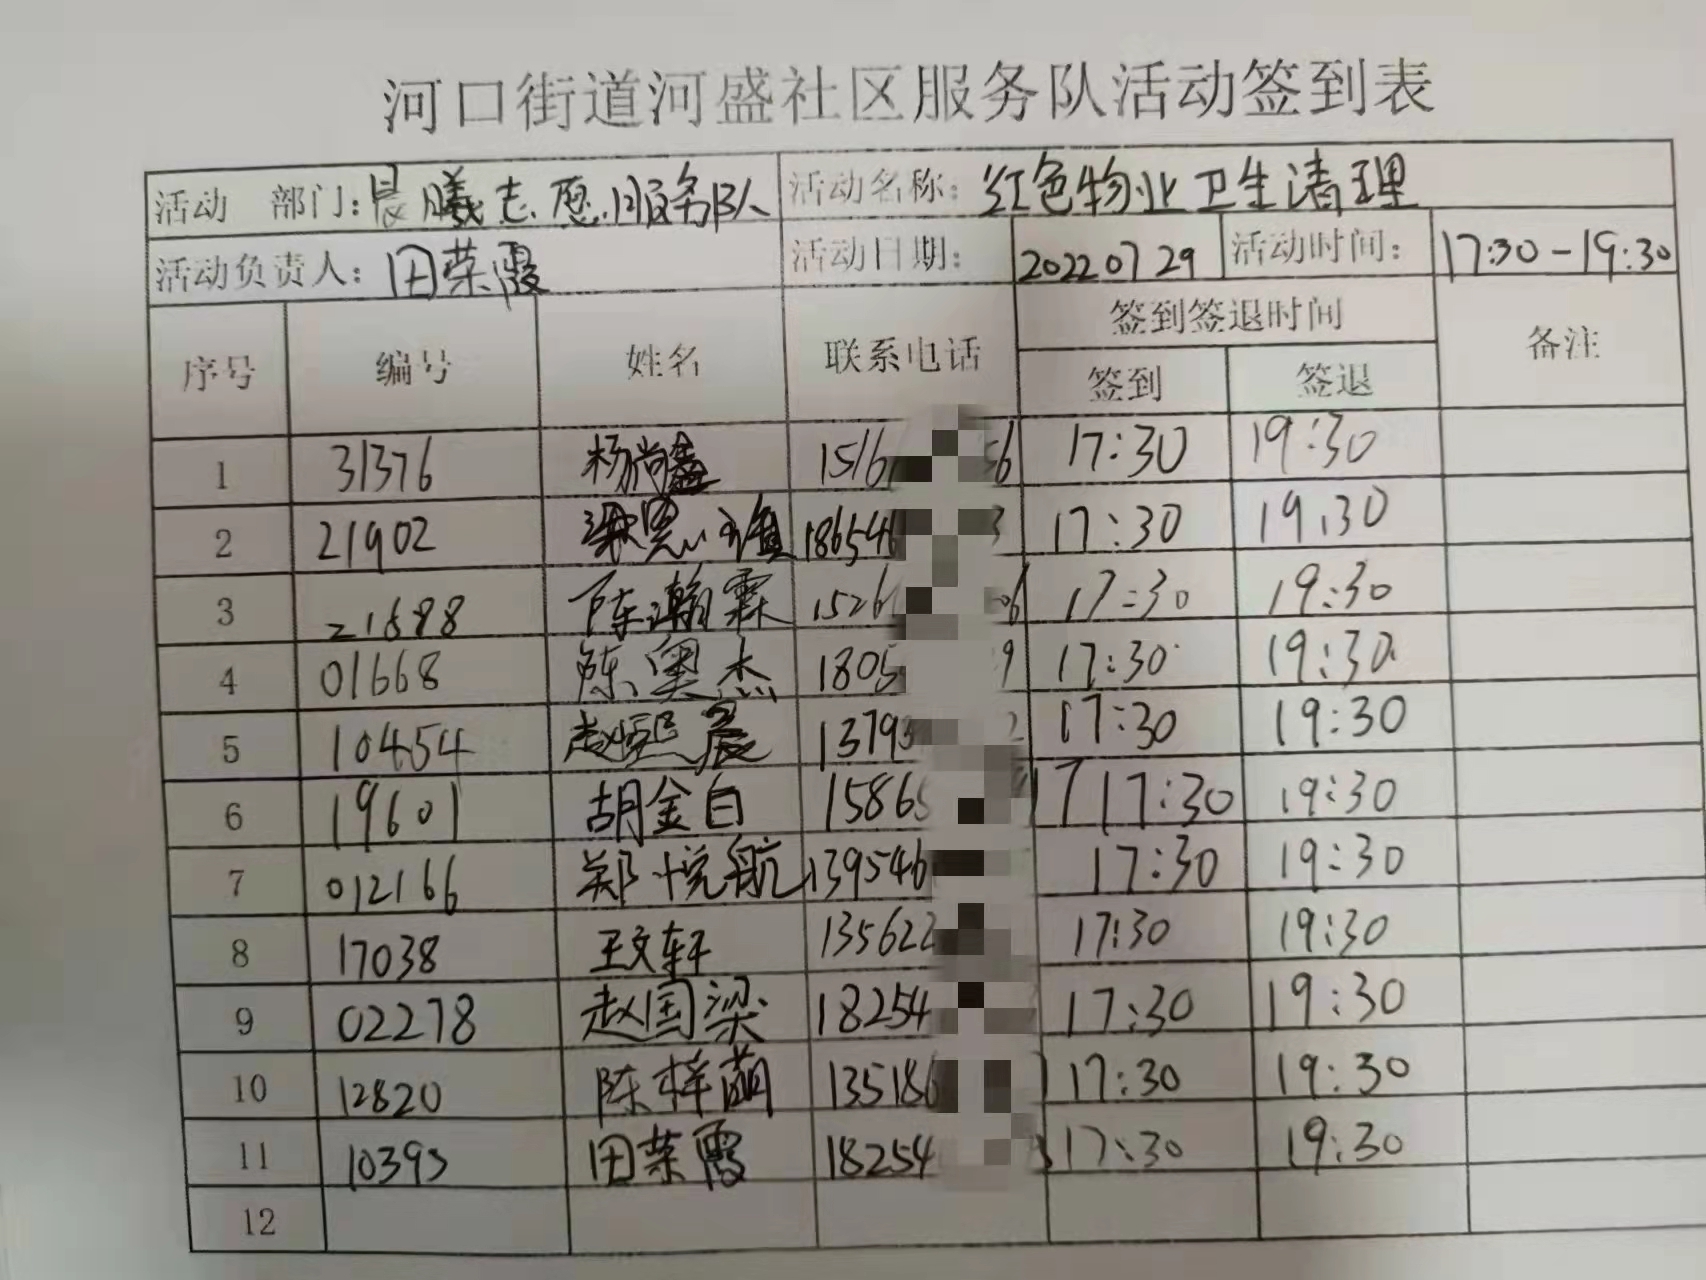 河口街道河盛社区服务队活动签到表
活动 部门: 晨曦志愿服务队 活动名称: 红色物业卫生清理
活动负责人: 田荣霞 活动日期: 20220729 活动时间: 17:30-19:30
序号 编号 姓名 联系电话 签到签退时间 备注
签到 签退
1 31376 杨尚鑫 1516 56 17:30 19:30
2 21902 186546 3 17:30 19:30
3 21688 陈瀚霖 1526 06 17:30 19:30
4 01668 陈奥杰 1805 9 17:30 19:30
5 10454 赵熙晨 13793 2 17:30 19:30
6 19601 胡金白 15865 17 17:30 19:30
7 012166 郑悦航 139546 17:30 19:30
8 17038 王文轩 135622 17:30 19:30
9 02278 赵国梁 18254 17:30 19:30
10 12820 陈梓萌 135186 17:30 19:30
11 10395 田荣霞 18254 17:30 19:30
12